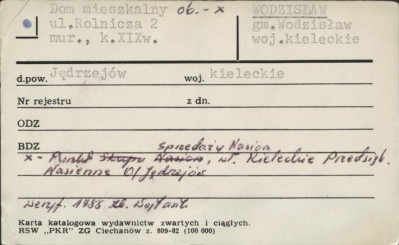 Dom mieszkalny ob. - x WODZISŁAW
ul.Rolnicza 2 gm.Wodzisław
mur., k.XIXw. woj.kieleckie
d.pow. Jędrzejów woj. kieleckie
Nr rejestru z dn.
ODZ
BDZ sprzedaży Nasion
x - Punkt Skupu Nasion, wł. Kieleckie Przedsięb.
Nasienne O/Jędrzejów
weryf. 1988
Karta katalogowa wydawnictw zwartych i ciągłych.
RSW „PKR" ZG Ciechanów z. 809-82 (100 000)